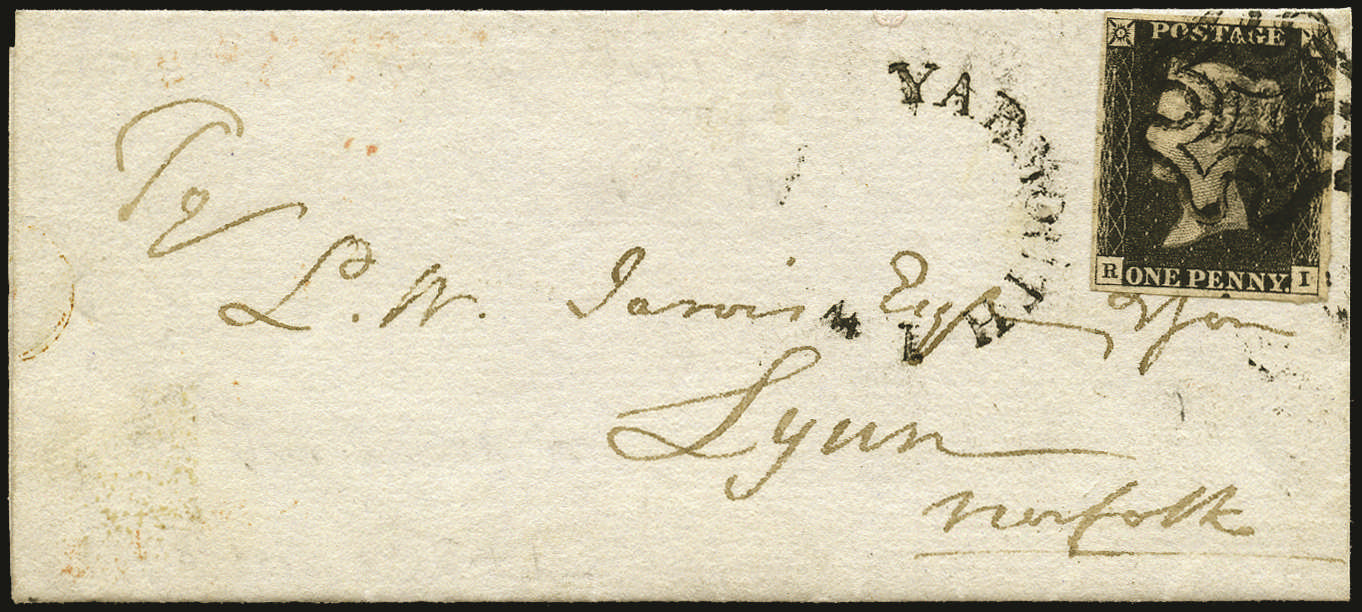 POSTAGE
YARMOUTH
R ONE PENNY. I
To
L. W. Jarvis Esqr
Lynn
Norfolk